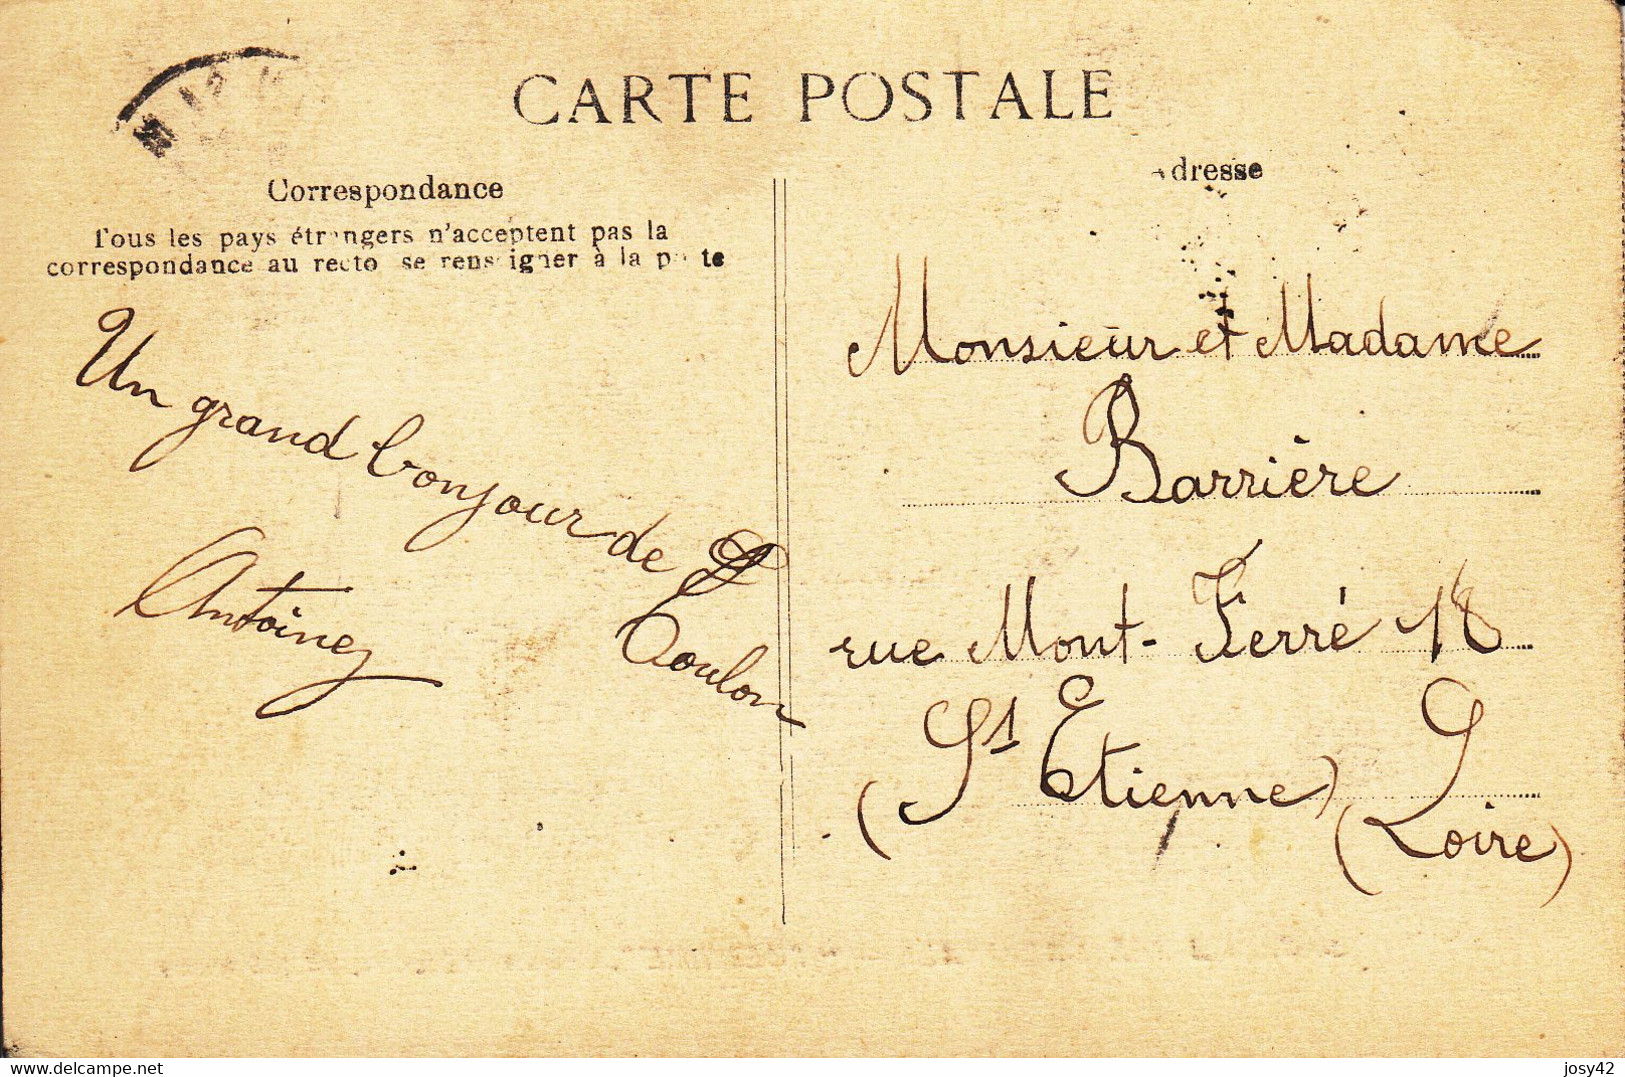 CARTE POSTALE
Correspondance
Tous les pays étrangers n'acceptent pas la
correspondance au recto se renseigner à la poste
Un grand bonjour de
Toulon
Antoine
Adresse
Monsieur et Madame
Barrière
rue Mont-Ferré 18
(St Etienne) (Loire)
delcampe.net
josy42